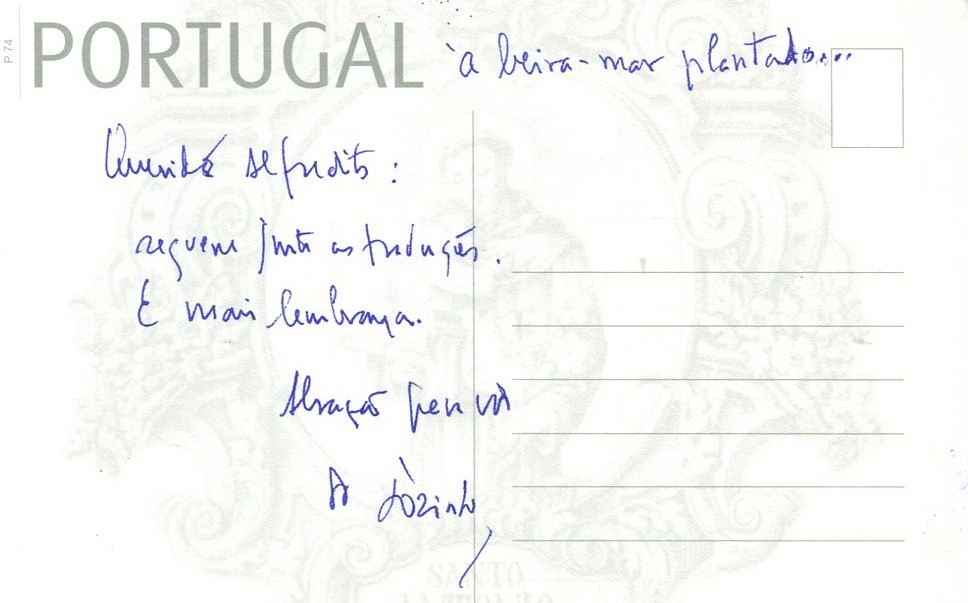 P 74
PORTUGAL à beira-mar plantado...
Querido Alfredito:
seguem junto as traduções.
E mais lembrança.
Abração para vó
A Lòzinha
SANTO